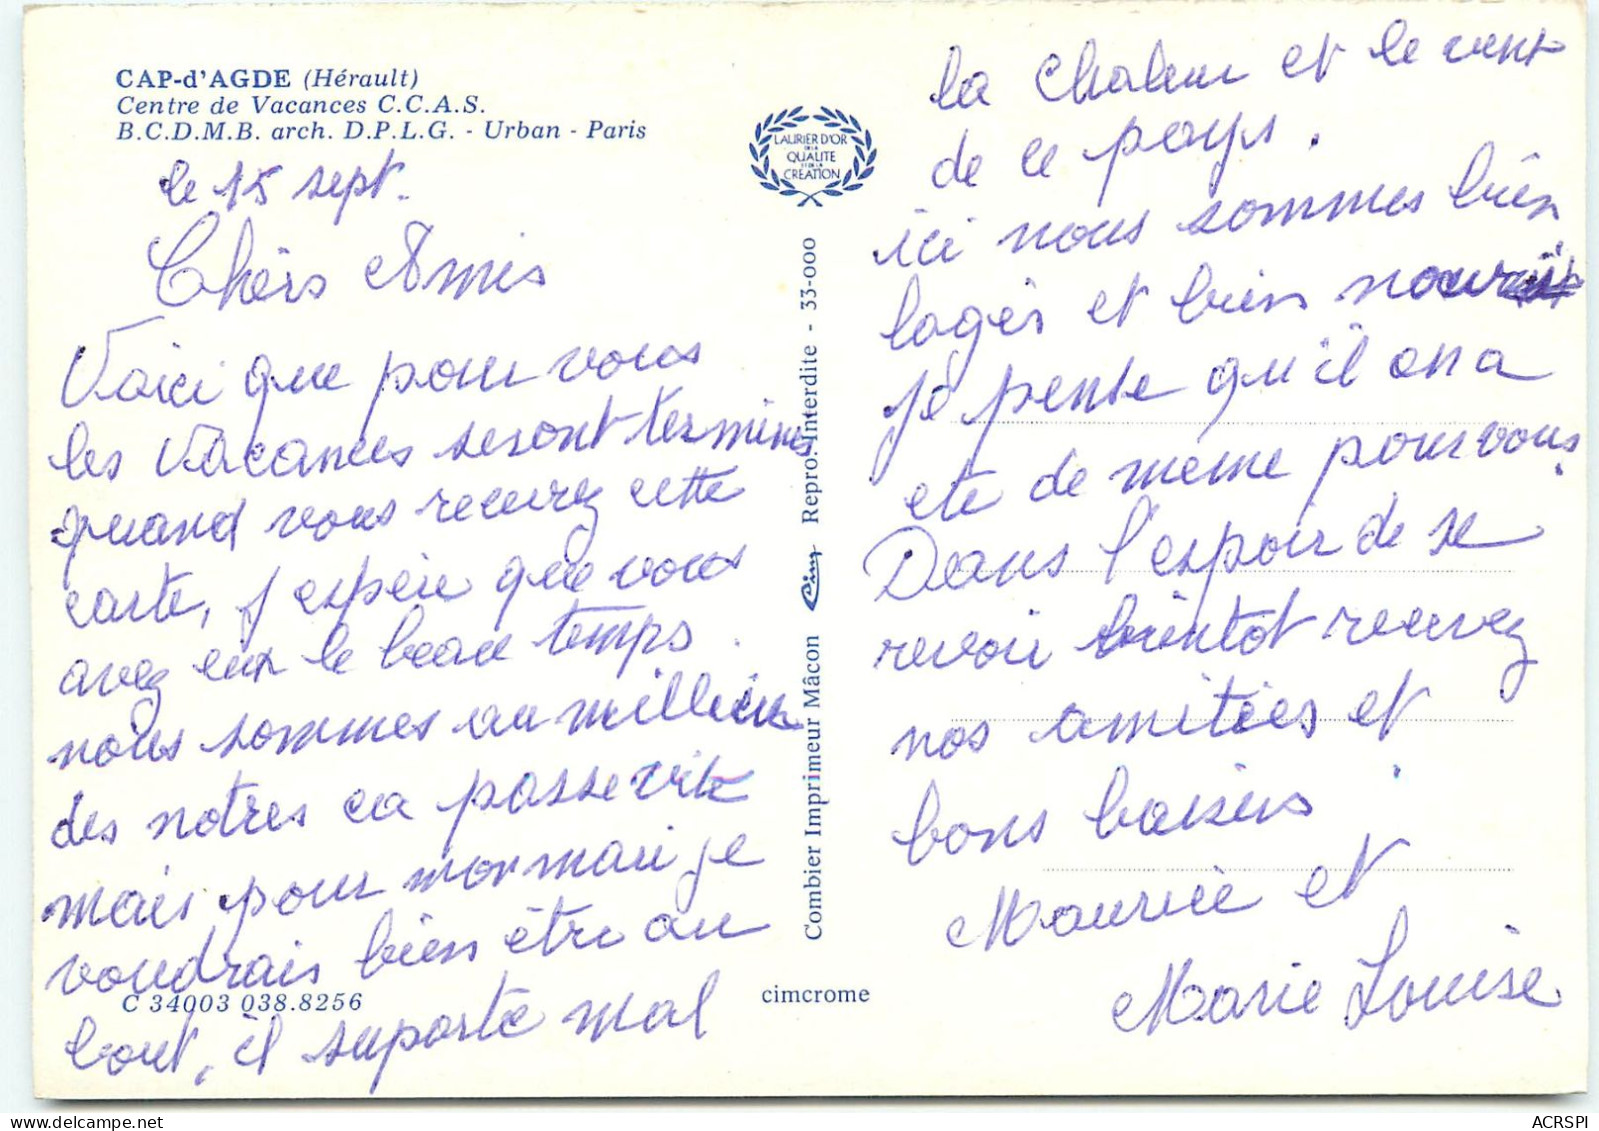 CAP-d'AGDE (Hérault)
Centre de Vacances C.C.A.S.
B.C.D.M.B. arch. D.P.L.G. - Urban - Paris
le 15 sept.
Chèrs Amis
Voici que pour vous
les Vacances seront terminés
quand vous recevrez cette
carte, j'espère que vous
avez eux le beau temps.
nous sommes au millieu
des notres ca passe vite
mais pour mon mari je
voudrais bien être au
C 34003 038.8256
bout, il suporte mal
LAURIER D'OR
DE LA
QUALITE
ET DE LA
CREATION
Combier Imprimeur Mâcon Cim Repro. Interdite - 33-000
cimcrome
la Chaleur et le vent
de ce pays.
ici nous sommes bien
logés et bien nourris
je pense qu'il on a
ete de meme pour vous.
Dans l'espoir de se
revoir bientot recevez
nos amitiées et
bons baisers
Maurice et
Marie Louise
ACRSPI